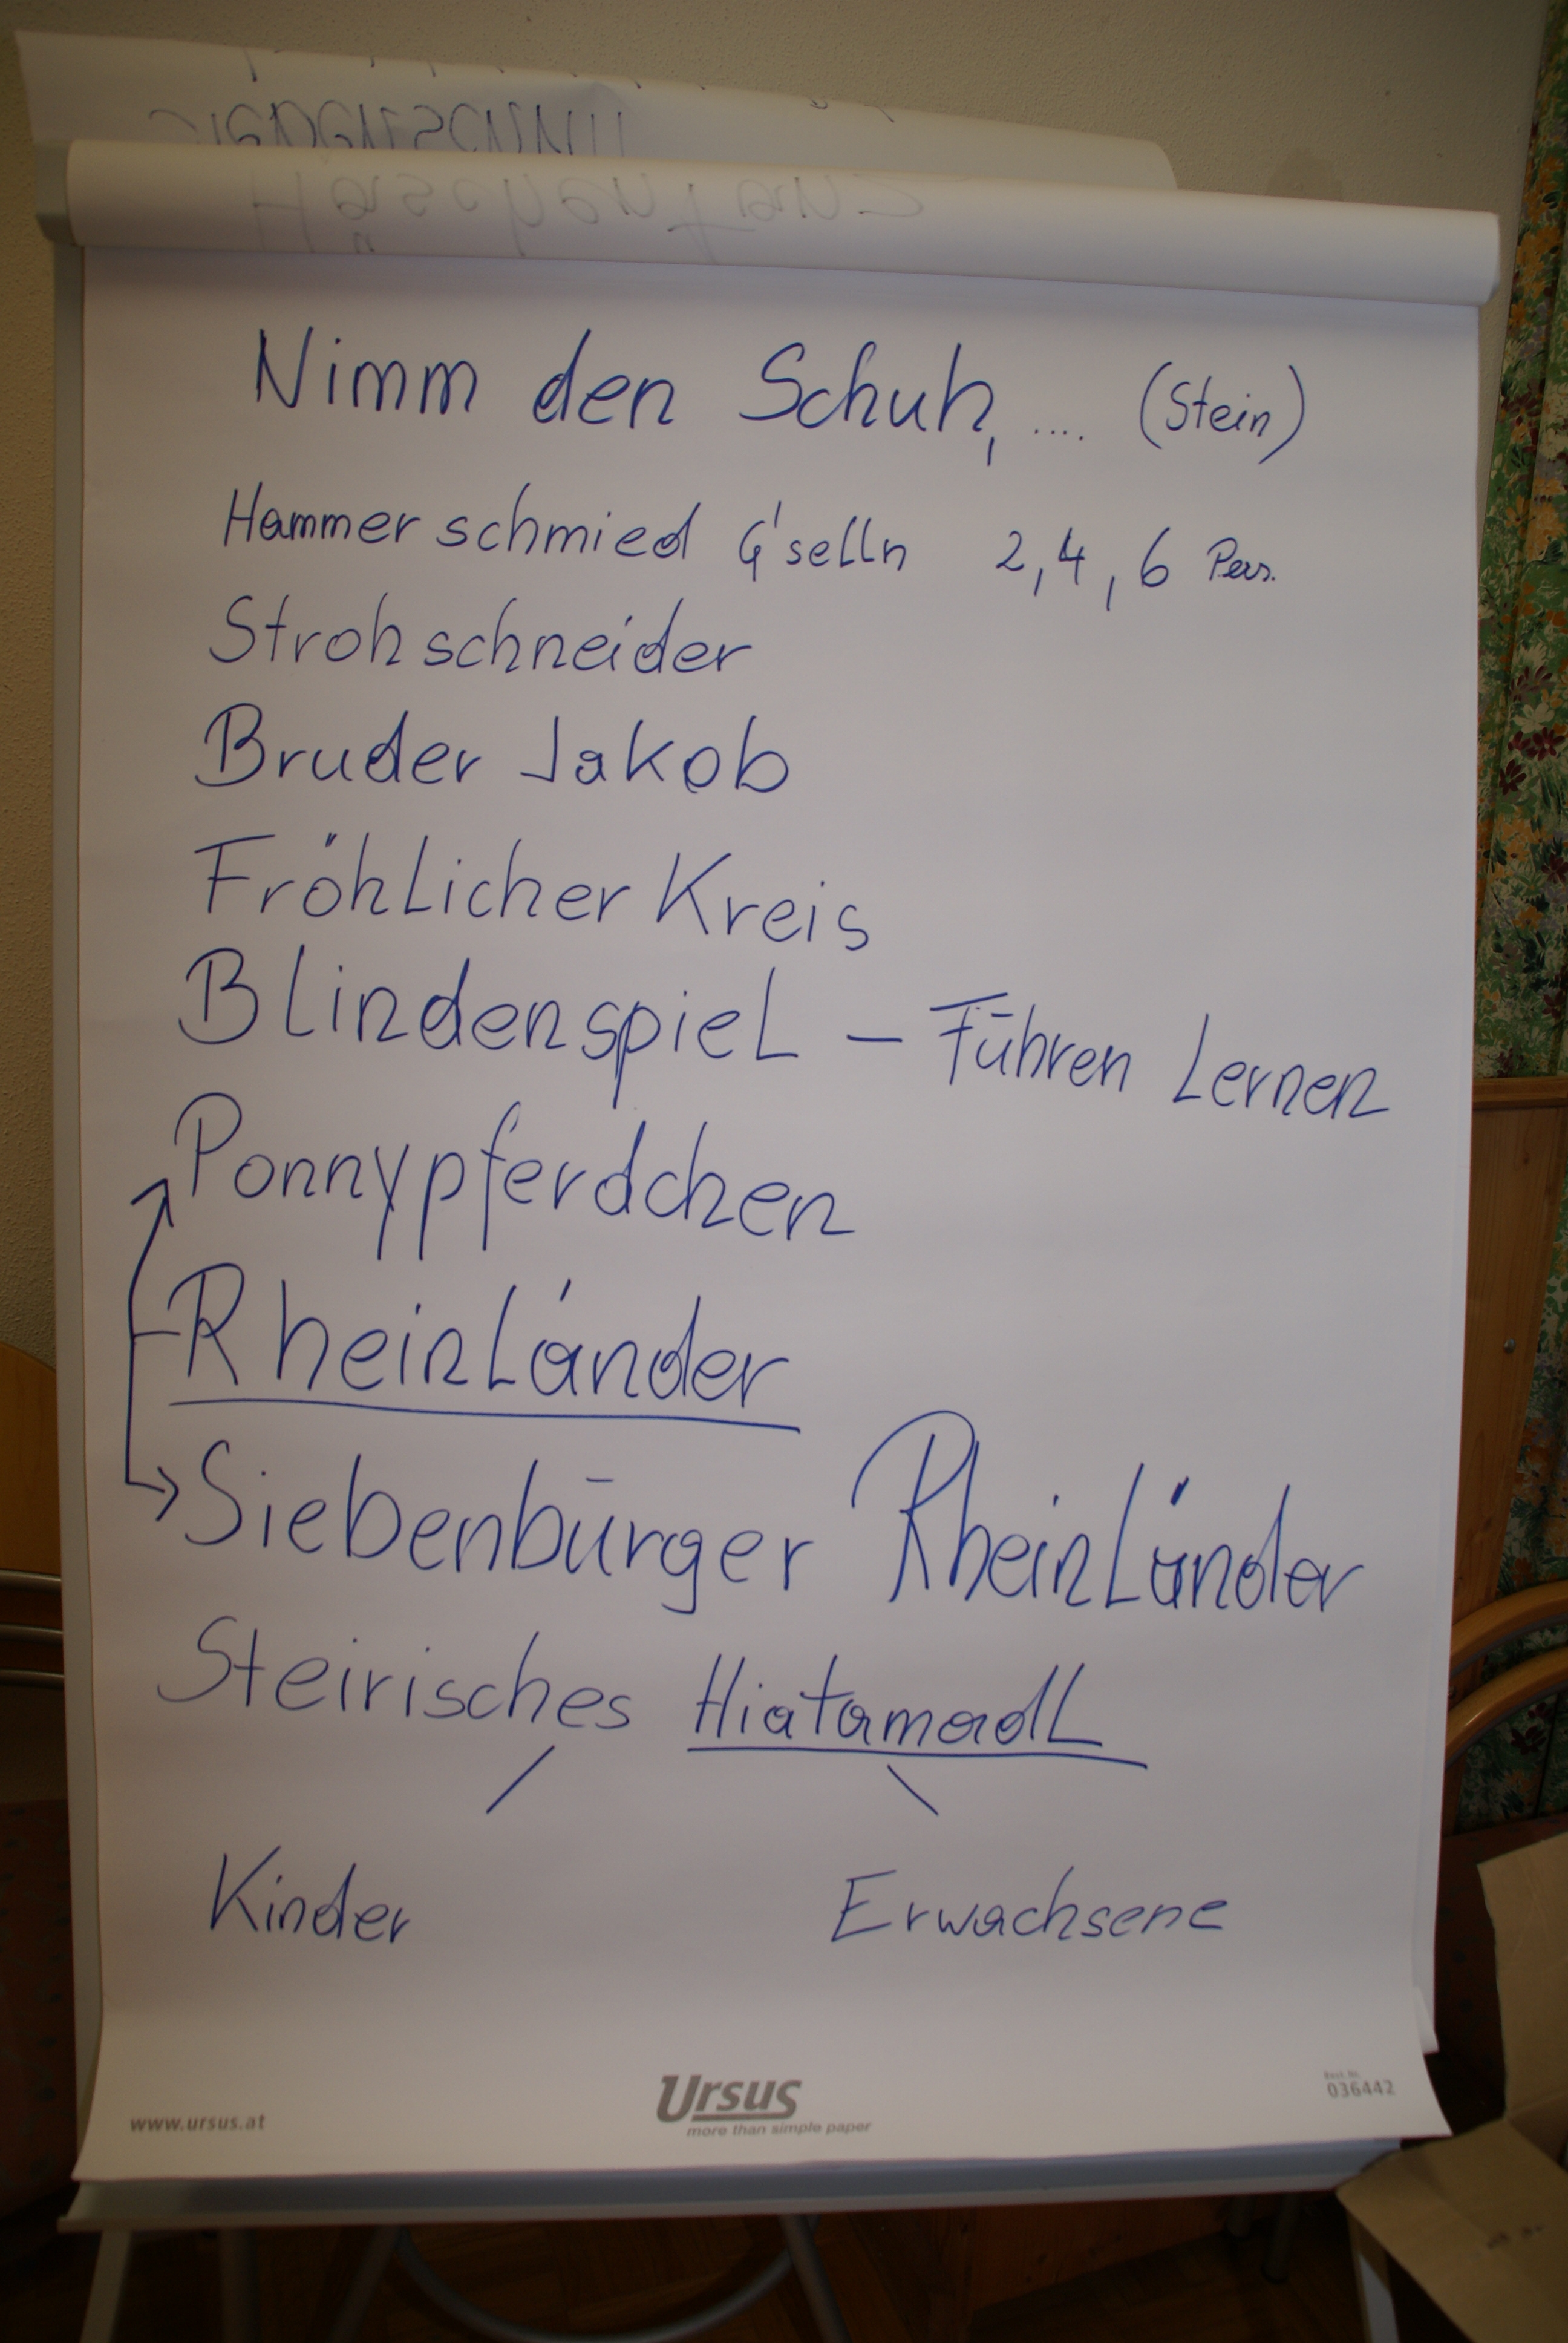 Nimm den Schuh, .... (Stein)
Hammerschmied G'selln 2, 4, 6 Pers.
Strohschneider
Bruder Jakob
Fröhlicher Kreis
Blindenspiel – Führen Lernen
Ponnypferdchen
Rheinländer
Siebenbürger Rheinländer
Steirisches Hiatamadl
Kinder Erwachsene
www.ursus.at
Ursus
more than simple paper
Best. Nr.
036442